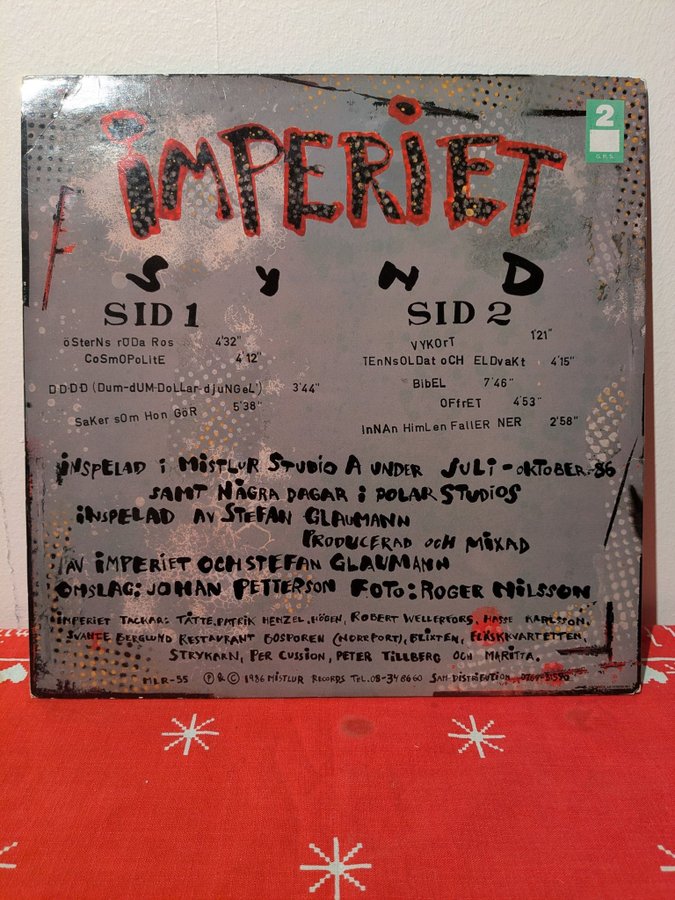 iMPERiET
2
G.P.S.
SYND
SID 1
öSterNs rÖDa Ros 4'32"
CoSmOPoLitE 4'12"
D·D·D·D (Dum-dUM-DoLLar-djuNGeL') 3'44"
SaKer sOm Hon GöR 5'38"
SID 2
VYKOrT 1'21"
TEnNsOLDat oCH ELDvaKt 4'15"
BibEL 7'46"
OFfrET 4'53"
InNAn HimLen FallER NER 2'58"
iNSPELAD i MiSTLUR STUDiO A UNDER JULi-OKTOBER.-86
SAMT NÅGRA DAGAR i POLAR STUDiOS
iNSPELAD AV STEFAN GLAUMANN
PRODUCERAD OCH MiXAD
AV iMPERiET OCH STEFAN GLAUMANN
OMSLAG: JOHAN PETTERSON FOTO: ROGER NiLSSON
iMPERiET TACKAR: TÅTTE, PATRiK HENZEL, HÖGEN, ROBERT WELLERFORS, HASSE KARLSSON,
SVANTE BERGLUND RESTAURANT BOSPOREN (NORRPORT), BLiXTEN, FLÄSKKVARTETTEN,
STRYKARN, PER CUSSiON, PETER TiLLBERG OCH MARiTTA.
MLR-55 ℗ & © 1986 MiSTLUR RECORDS TEL. 08-34 86 60 SAM-DiSTRiBUTiON